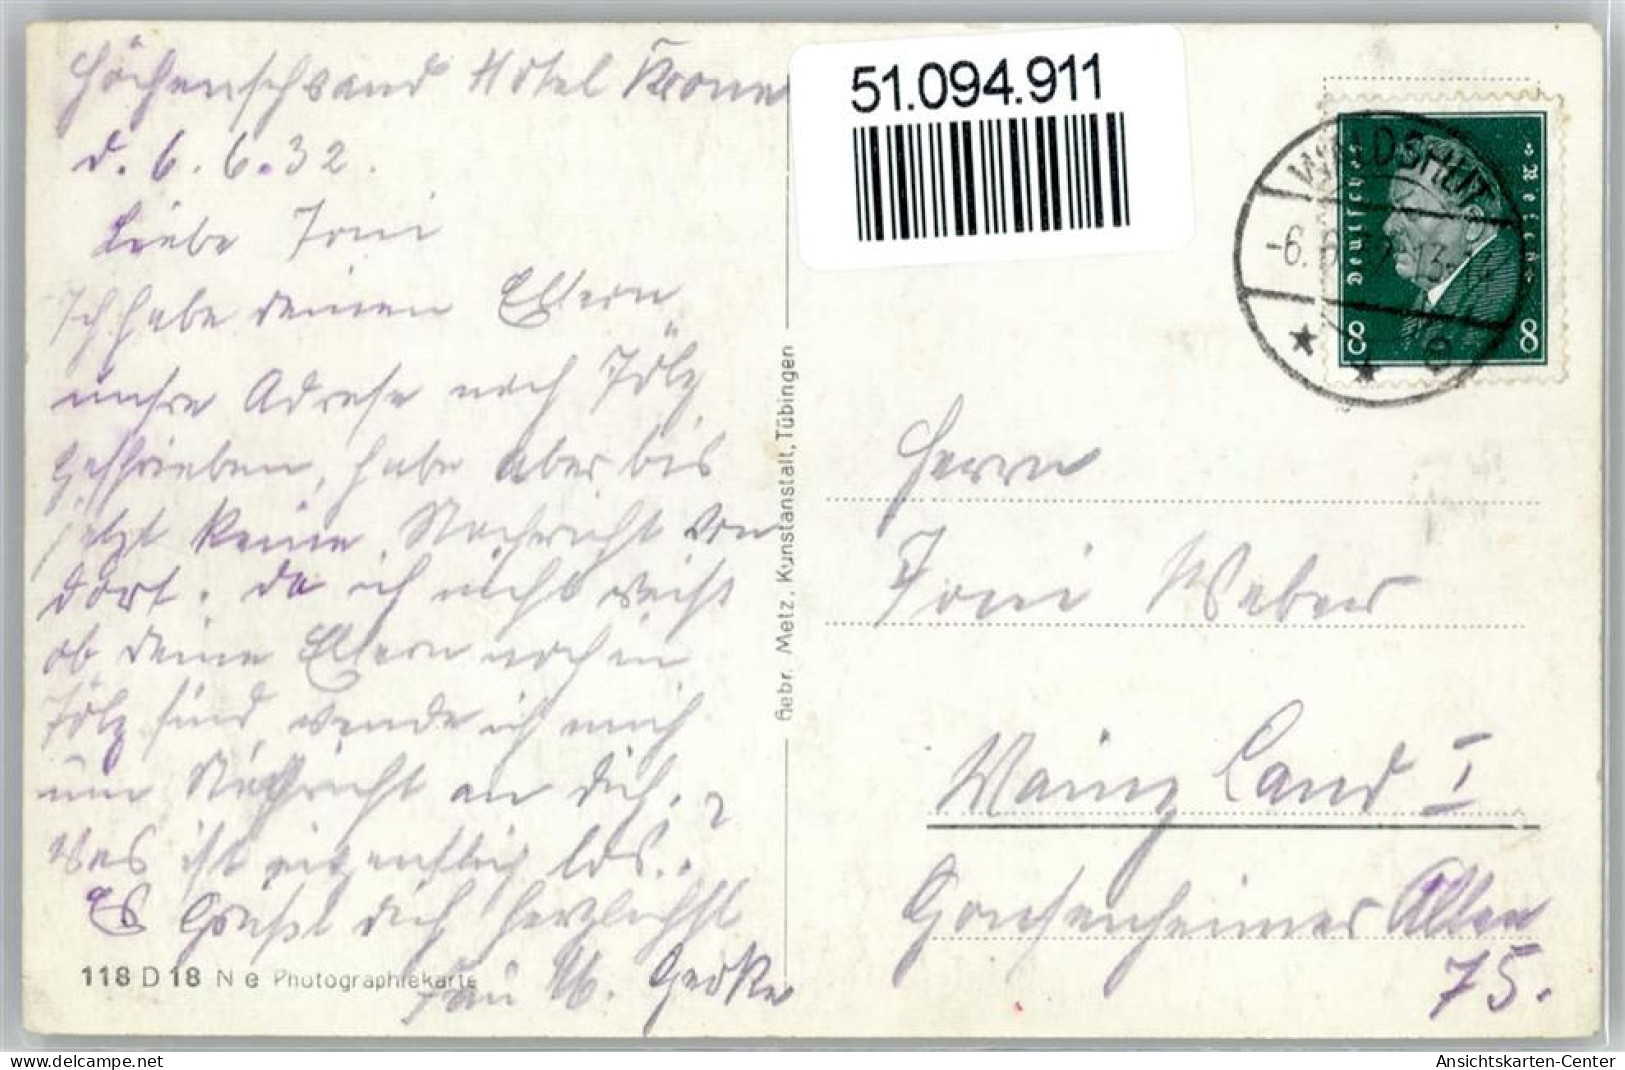 Höchenschwand Hotel Krone
d. 6. 6. 32.
Liebe Toni
Ich habe deinen Eltern
unsre Adresse nach Tölz
geschrieben, habe aber bis
jetzt keine Nachricht von
dort. Da ich nicht weiß
ob deine Eltern noch in
Tölz sind, wende ich mich
um Nachricht an dich.
Was ist eigentlich los?
Es Grüßt dich herzlichst
Frau M. Gerke
118 D 18 N e Photographiekarte
Gebr. Metz, Kunstanstalt, Tübingen
51.094.911
WALDSHUT
-6. 6. 32. 13-
e
Deutsches Reich
8 8
Herrn
Toni Weber
Mainz Land I
Gonsenheimer Allee
75.
delcampe.net
Ansichtskarten-Center